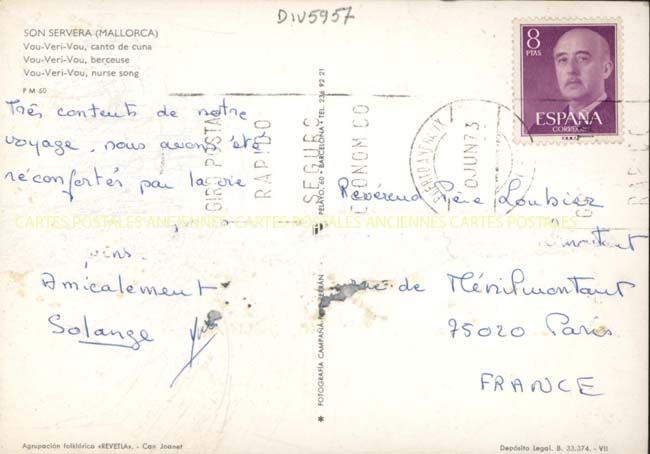 DIV5957
SON SERVERA (MALLORCA)
Vou-Veri-Vou, canto de cuna
Vou-Veri-Vou, berceuse
Vou-Veri-Vou, nurse song
P M 50
Très contents de notre
voyage, nous avons été
réconfortés par la vie
Amicalement
Solange
8
PTAS
ESPAÑA
CORREOS
GIRO POSTAL
RAPIDO
SEGURO
ECONOMICO
JUN 73
Révérend Père Loubier
de Ménilmontant
75020 Paris
FRANCE
CARTES POSTALES ANCIENNES CARTES POSTALES ANCIENNES CARTES POSTALES
PELAYO, 60 - BARCELONA - TEL. 236 92 21
FOTOGRAFIA CAMPAÑA
Agrupación folklórica «REVETLA». - Can Joanet
Depósito Legal. B. 33,374. - VII